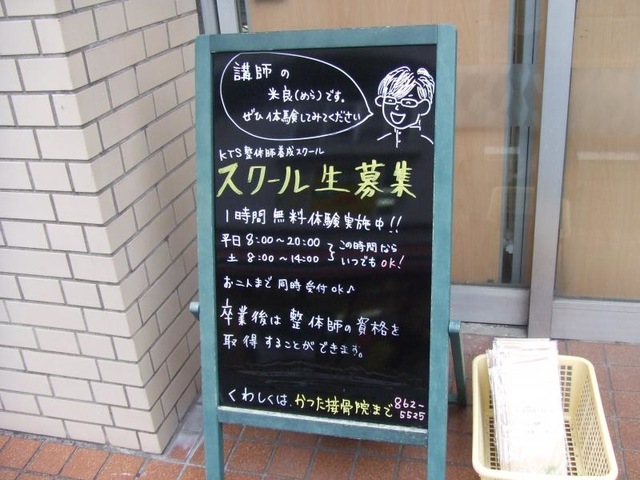 講師の
米良(めら)です。
ぜひ体験してみてください
KTS整体師養成スクール
スクール生募集
1時間無料体験実施中!!
平日 8:00〜20:00
土 8:00〜14:00
この時間なら
いつでもOK!
お二人まで同時受付OK♪
卒業後は整体師の資格を
取得することができます。
くわしくは、かつた接骨院まで 862-
5525